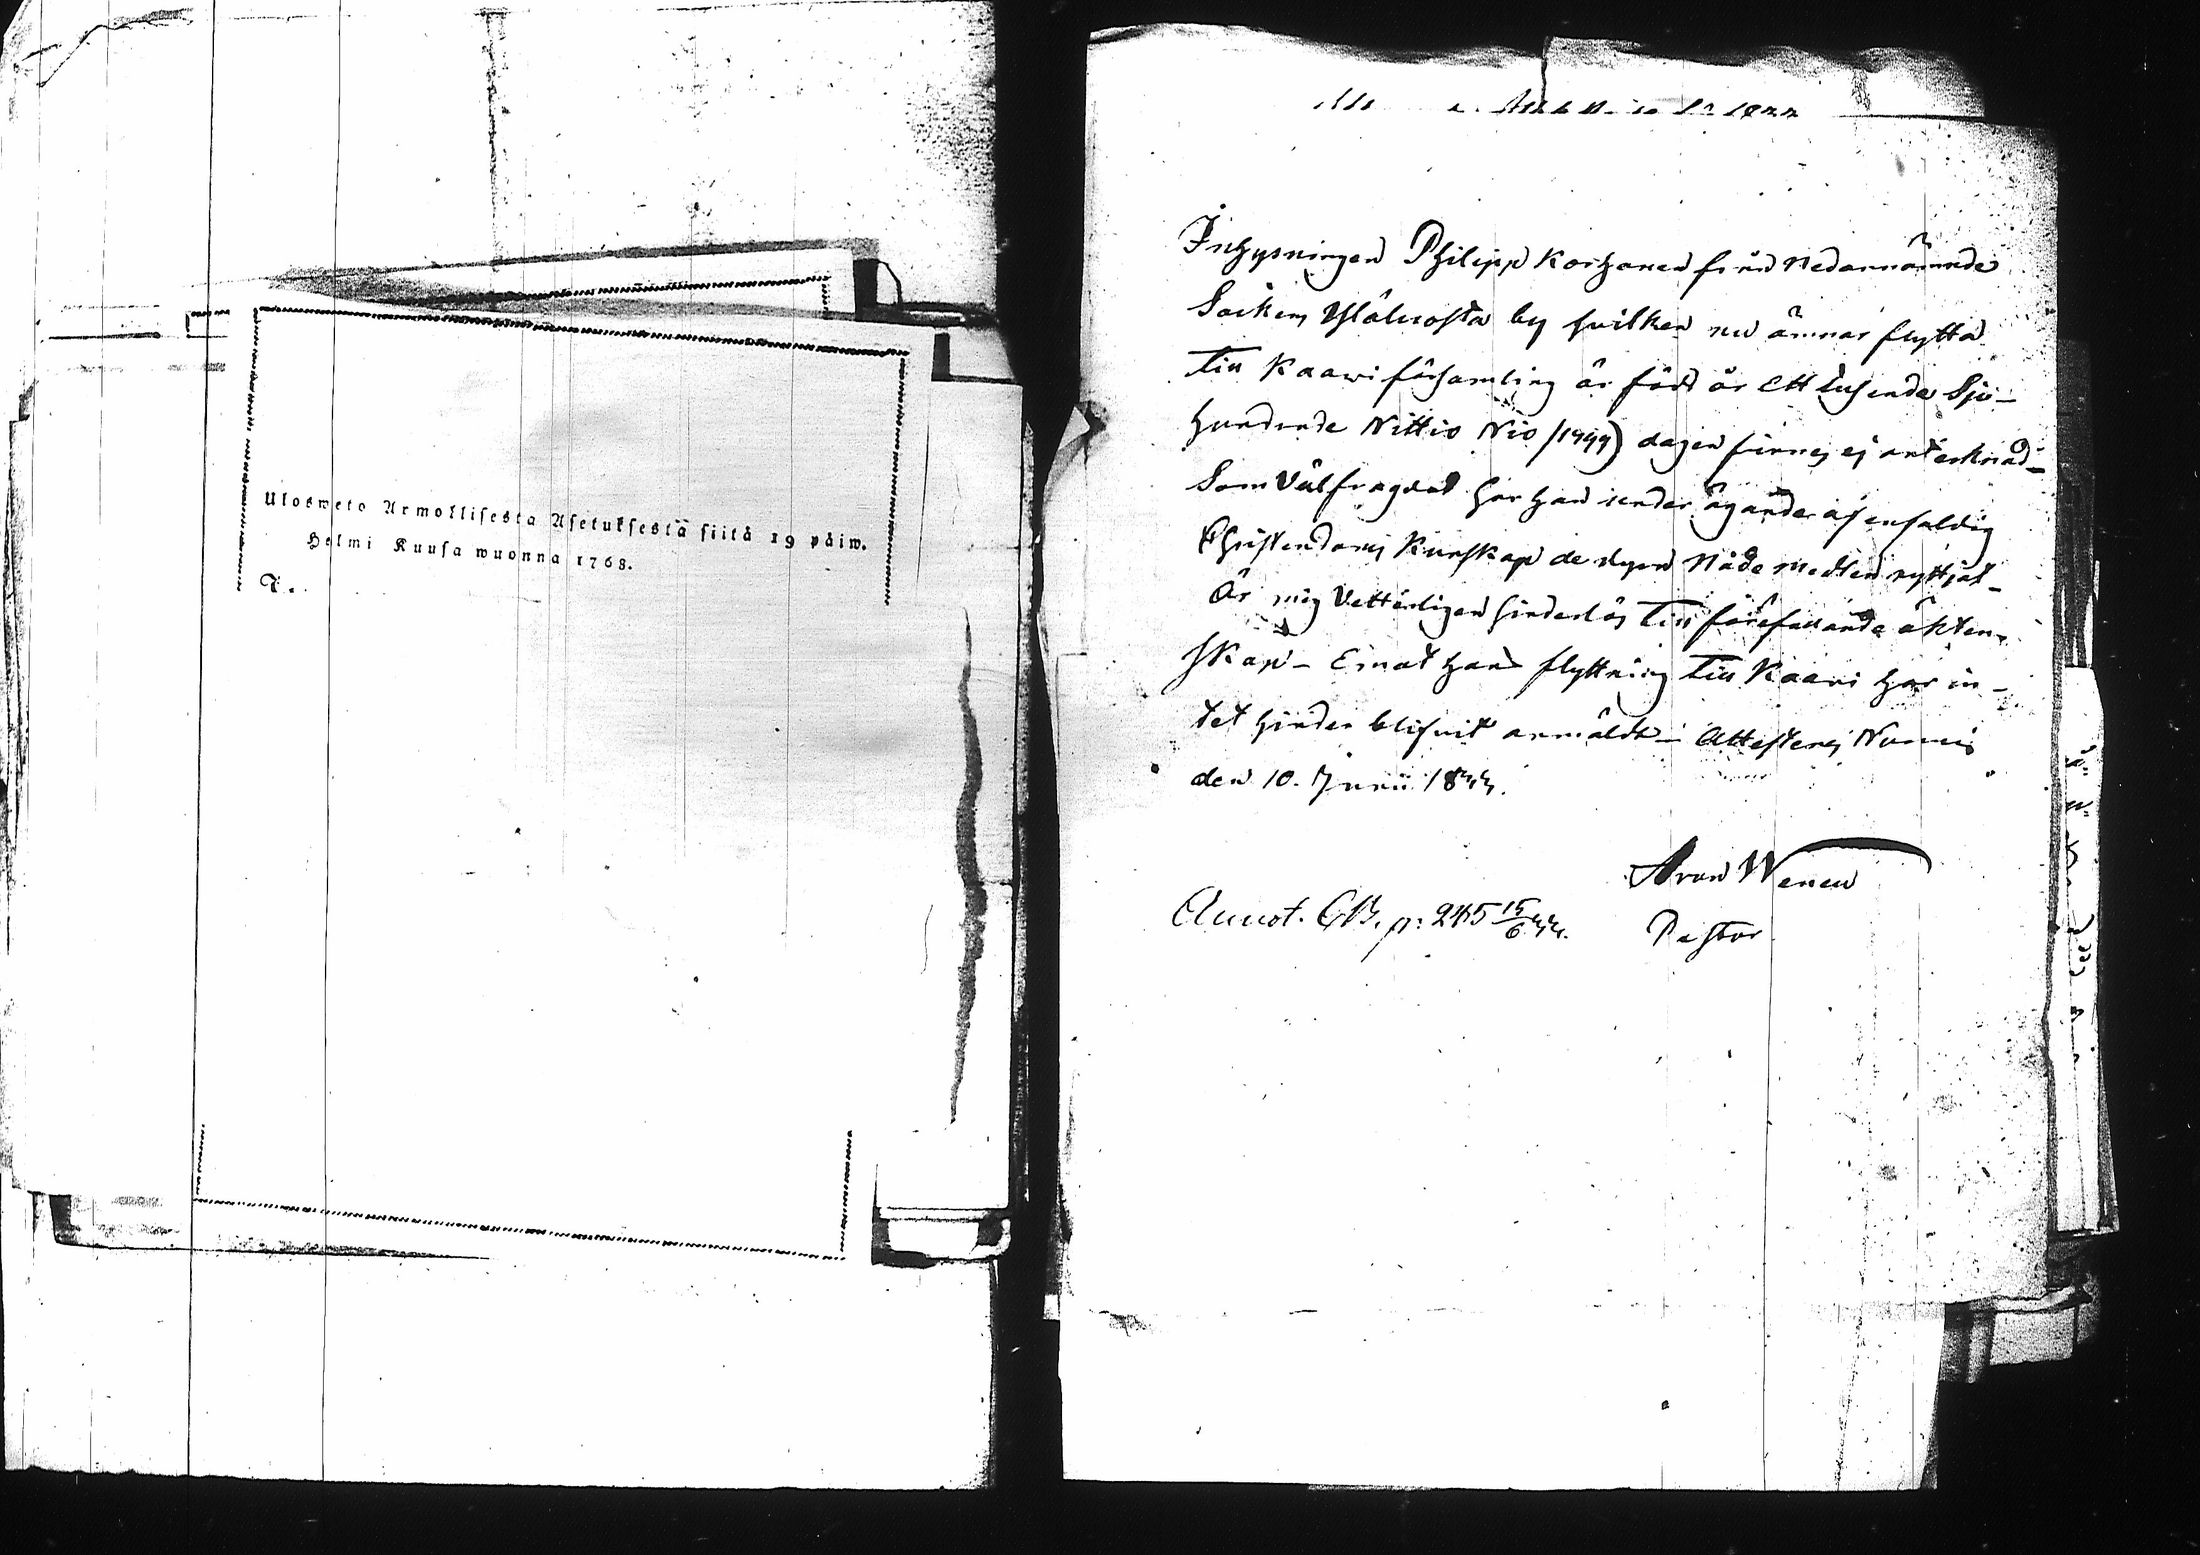 Ulosweto Armollisesta Asetuksestä siitä 19 päiw.
Helmi Kuusa wuonna 1768.
T.
Inhysningen Philipp Korhonen från Nedannämnde
Sockens by hvilken nu ämnar flytta
till Kaawi församling är född år Ett tusende Sju-
hundrade Nittio Nio /1799) dagen finnes ej antecknad_
Som Välfragdad har han under ägande af enfaldig
Christendoms Kunskap de dyra Nåde Medlen nyttjat_
Är mig Vetterligen hinderlös till förefallande äkten-
skap_ Emot hans flyttning till Kaawi har in-
tet hinder blifvit anmäldt_ Attesteras Nurmis
den 10. Junii 1844.
Aron Wenell
Pastor
Annot. CB. p: 245 15/6 44.